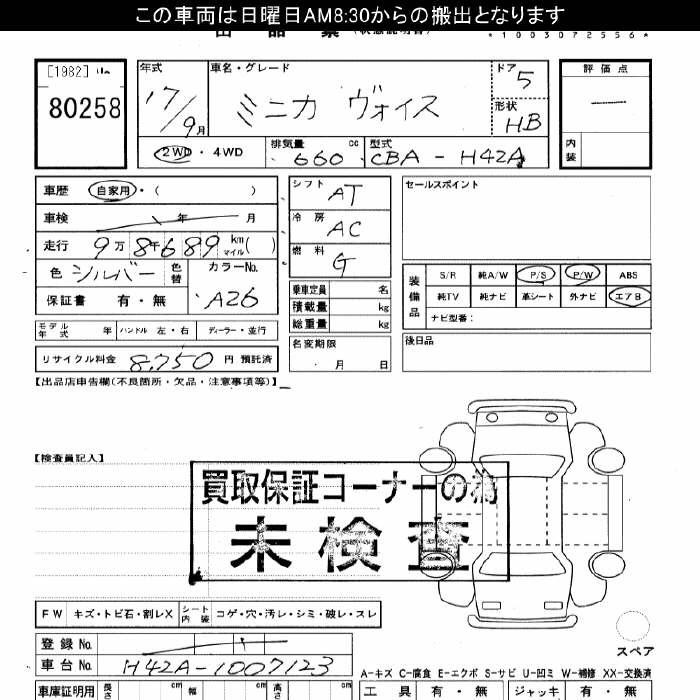 この車両は日曜日AM8:30からの搬出となります
*1003072556*
[1982]
80258
年式 車名・グレード ドア 5 評価点
17/9月 ミニカ ヴォイス 形状 HB
内装
2WD・4WD 排気量 660 cc 型式 CBA - H42A
車歴 自家用・( ) シフト AT セールスポイント
車検 年 月 冷房 AC
走行 9万8千689 km マイル( ) 燃料 G
色 シルバー 色替 カラーNo. A26
保証書 有・無
装備品 S/R 純A/W P/S P/W ABS
純TV 純ナビ 革シート 外ナビ エアB
ナビ型番:
乗車定員 名
積載量 kg
総重量 kg
モデル年式 年 ハンドル 左・右 ディーラー・並行
名変期限 月 日
後日品
リサイクル料金 8,750 円 預託済
【出品店申告欄(不良箇所・欠品・注意事項等)】
【検査員記入】
買取保証コーナーの為
未検査
FW キズ・トビ石・割レX シート内装 コゲ・穴・汚レ・シミ・破レ・スレ
スペア
登録No.
車台No. H42A-1007123
A-キズ C-腐食 E-エクボ S-サビ U-凹ミ W-補修 XX-交換済
車庫証明用 長さ cm 幅 cm 高さ cm
工具 有・無 ジャッキ 有・無